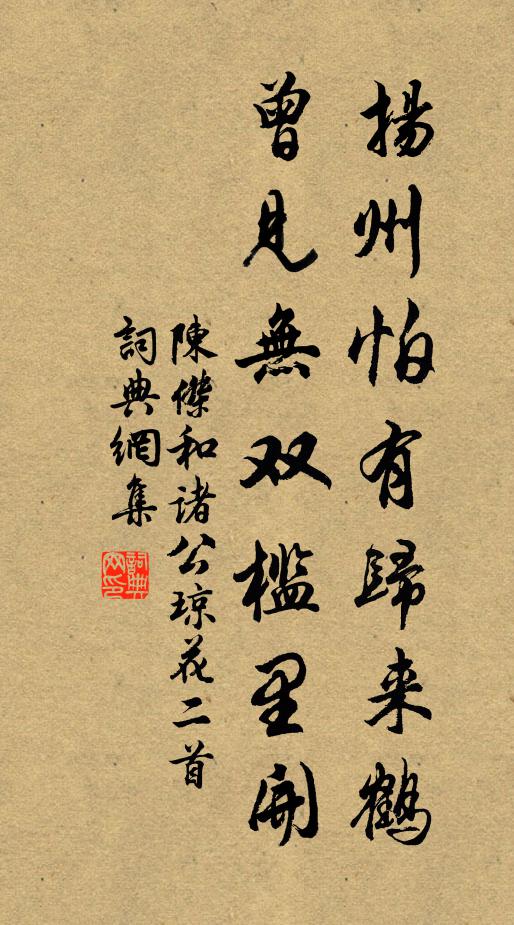 揚州怕有歸来鶴
曾見無双檻里開
陳傑和諸公琼花二首
詞典網集
詞典網印